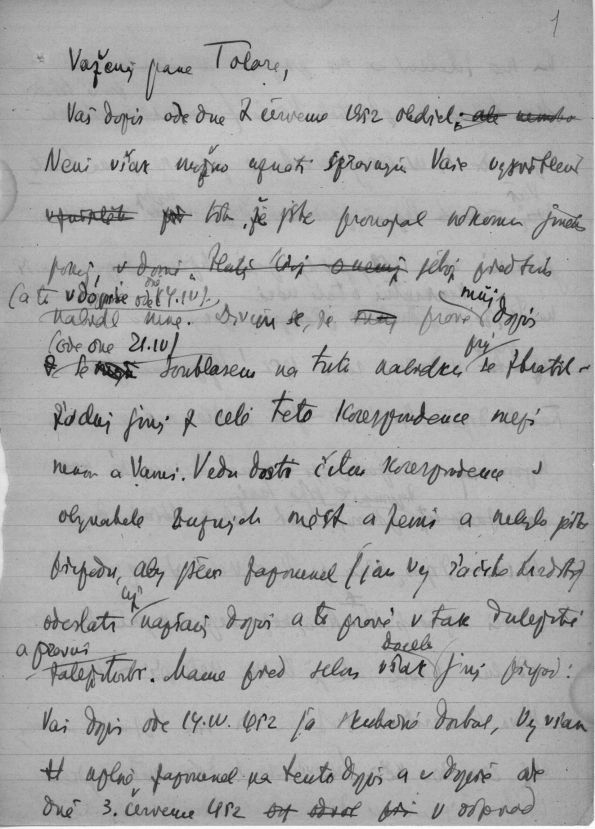 1
Vážený pane Tolare,
Váš dopis ode dne 2 července 1952 obdržel; ale
Není však možno uznati správným Vaše vysvětlení
toho, že jste pronajal někomu jinému
pokoj, jenž předtím
(a to v dopise ode dne 14.IV)
nabídl mně. Divím se, že právě můj dopis
(ode dne 21.IV)
se souhlasem na tuto nabídku prý se ztratil –
žádný jiný z celé této korespondence mezi
mnou a Vámi. Vedu dosti četnou korespondenci s
obyvateli různých měst a zemí a nebylo ještě
případu, aby jsem zapomenul
odeslati už napsaný dopis a to právě v tak důležité
a pravní
záležitosti. Máme před sebou však docela jiný případ:
Váš dopis ode 14.IV. 1952 já skutečně dostal, Vy však
úplně zapomenul na tento dopis a v dopise ode
dně 3. července 1952 v odpověď